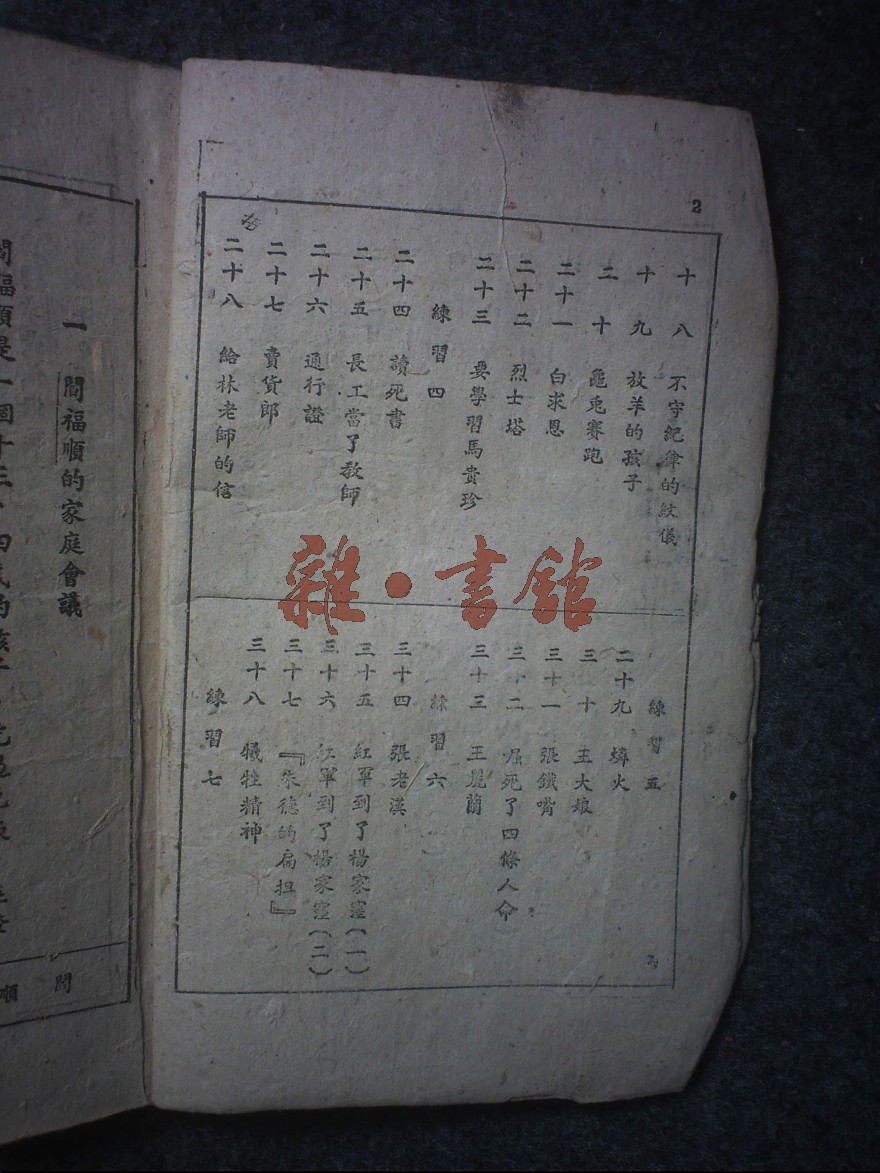 2
十八 不守紀律的紋儀
十九 放羊的孩子
二十 龜兎賽跑
二十一 白求恩
二十二 烈士塔
二十三 要學習馬貴珍
練習四
二十四 讀死書
二十五 長工當了教師
二十六 通行證
二十七 賣貨郎
二十八 給林老師的信
練習五
二十九 燐火
三十 王大娘
三十一 張鐵嘴
三十二 屈死了四條人命
三十三 王蘭
練習六
三十四 張老漢
三十五 紅軍到了楊家窪(一)
三十六 紅軍到了楊家窪(二)
三十七 『朱德的扁担』
三十八 犧牲精神
練習七
雜·書館
一 閻福順的家庭會議
閻福順是一個十三、四歲的孩子
問
順